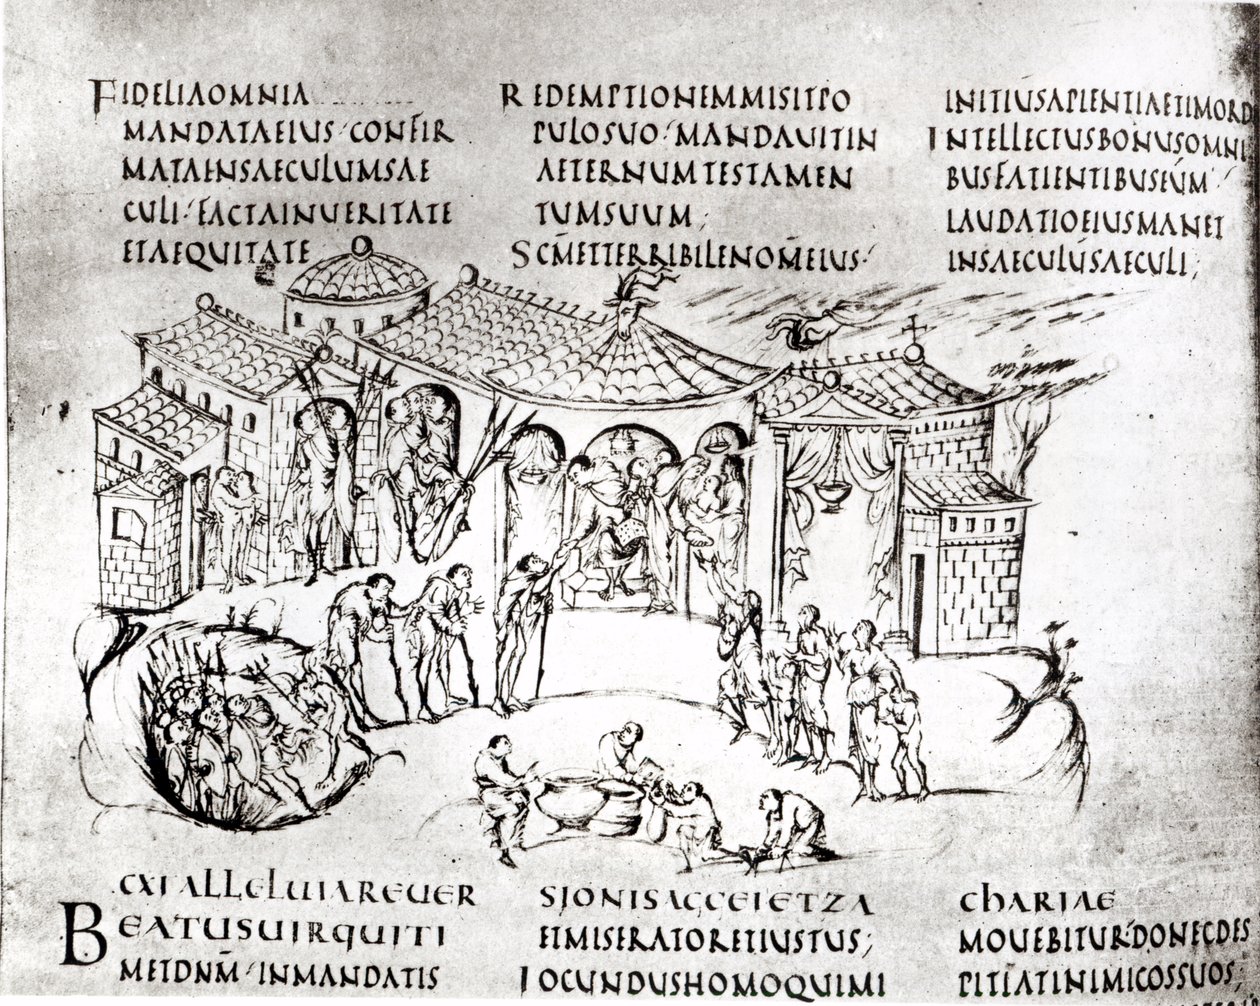 FIDELIAOMNIA
MANDATAEIUS·CONFIR
MATAINSAECULUMSAE
CULI·FACTAINUERITATE
ETAEQUITATE
REDEMPTIONEMMISITPO
PULOSUO·MANDAUITIN
AETERNUMTESTAMEN
TUMSUUM;
SCM̄ETTERRIBILENOM̄EIUS·
INITIUSAPIENTIAETIMORD
INTELLECTUSBONUSOMNI
BUSFACIENTIBUSEUM·
LAUDATIOEIUSMANET
INSAECULUSAECULI;
CXI ALLELUIAREUER SIONISAGGEIETZA CHARIAE
BEATUSUIRQUITI
METDNM̄·INMANDATIS
ETMISERATORETIUSTUS;
IOCUNDUSHOMOQUIMI
MOUEBITUR·DONECDES
PITIATINIMICOSSUOS;